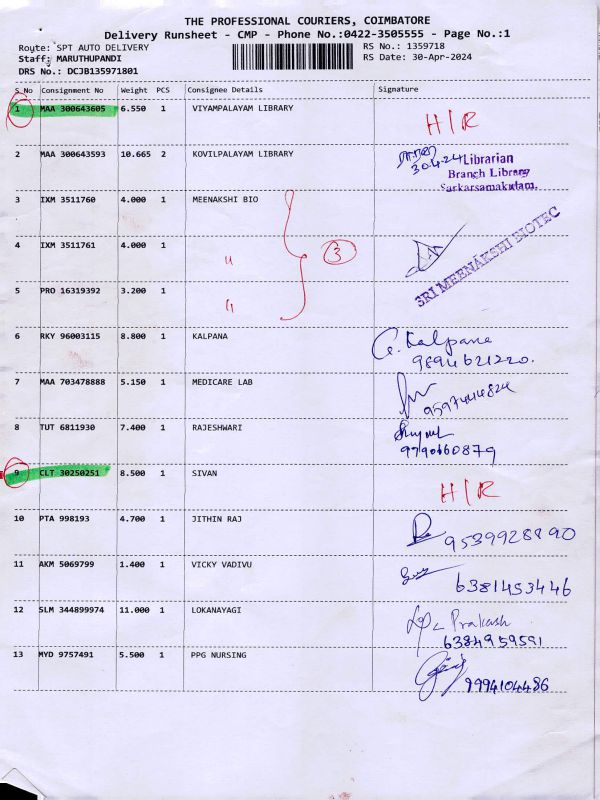 THE PROFESSIONAL COURIERS, COIMBATORE
Delivery Runsheet - CMP - Phone No.:0422-3505555 - Page No.:1
Route: SPT AUTO DELIVERY RS No.: 1359718
Staff: MARUTHUPANDI RS Date: 30-Apr-2024
DRS No.: DCJB135971801
S.No Consignment No Weight PCS Consignee Details Signature
1 MAA 300643605 6.550 1 VIYAMPALAYAM LIBRARY H/R
2 MAA 300643593 10.665 2 KOVILPALAYAM LIBRARY 30.4.24 Librarian
Branch Library
Sarkarsamakulam.
3 IXM 3511760 4.000 1 MEENAKSHI BIO
4 IXM 3511761 4.000 1 " 3 SRI MEENAKSHI BIOTEC
5 PRO 16319392 3.200 1 "
6 RKY 96003115 8.800 1 KALPANA G. Kalpana
9894621220.
7 MAA 703478888 5.150 1 MEDICARE LAB
8 TUT 6811930 7.400 1 RAJESHWARI
9790660879
9 CLT 30250251 8.500 1 SIVAN H/R
10 PTA 998193 4.700 1 JITHIN RAJ 9539928890
11 AKM 5069799 1.400 1 VICKY VADIVU 6381453446
12 SLM 344899974 11.000 1 LOKANAYAGI Prakash
6384959591
13 MYD 9757491 5.500 1 PPG NURSING 9994104486